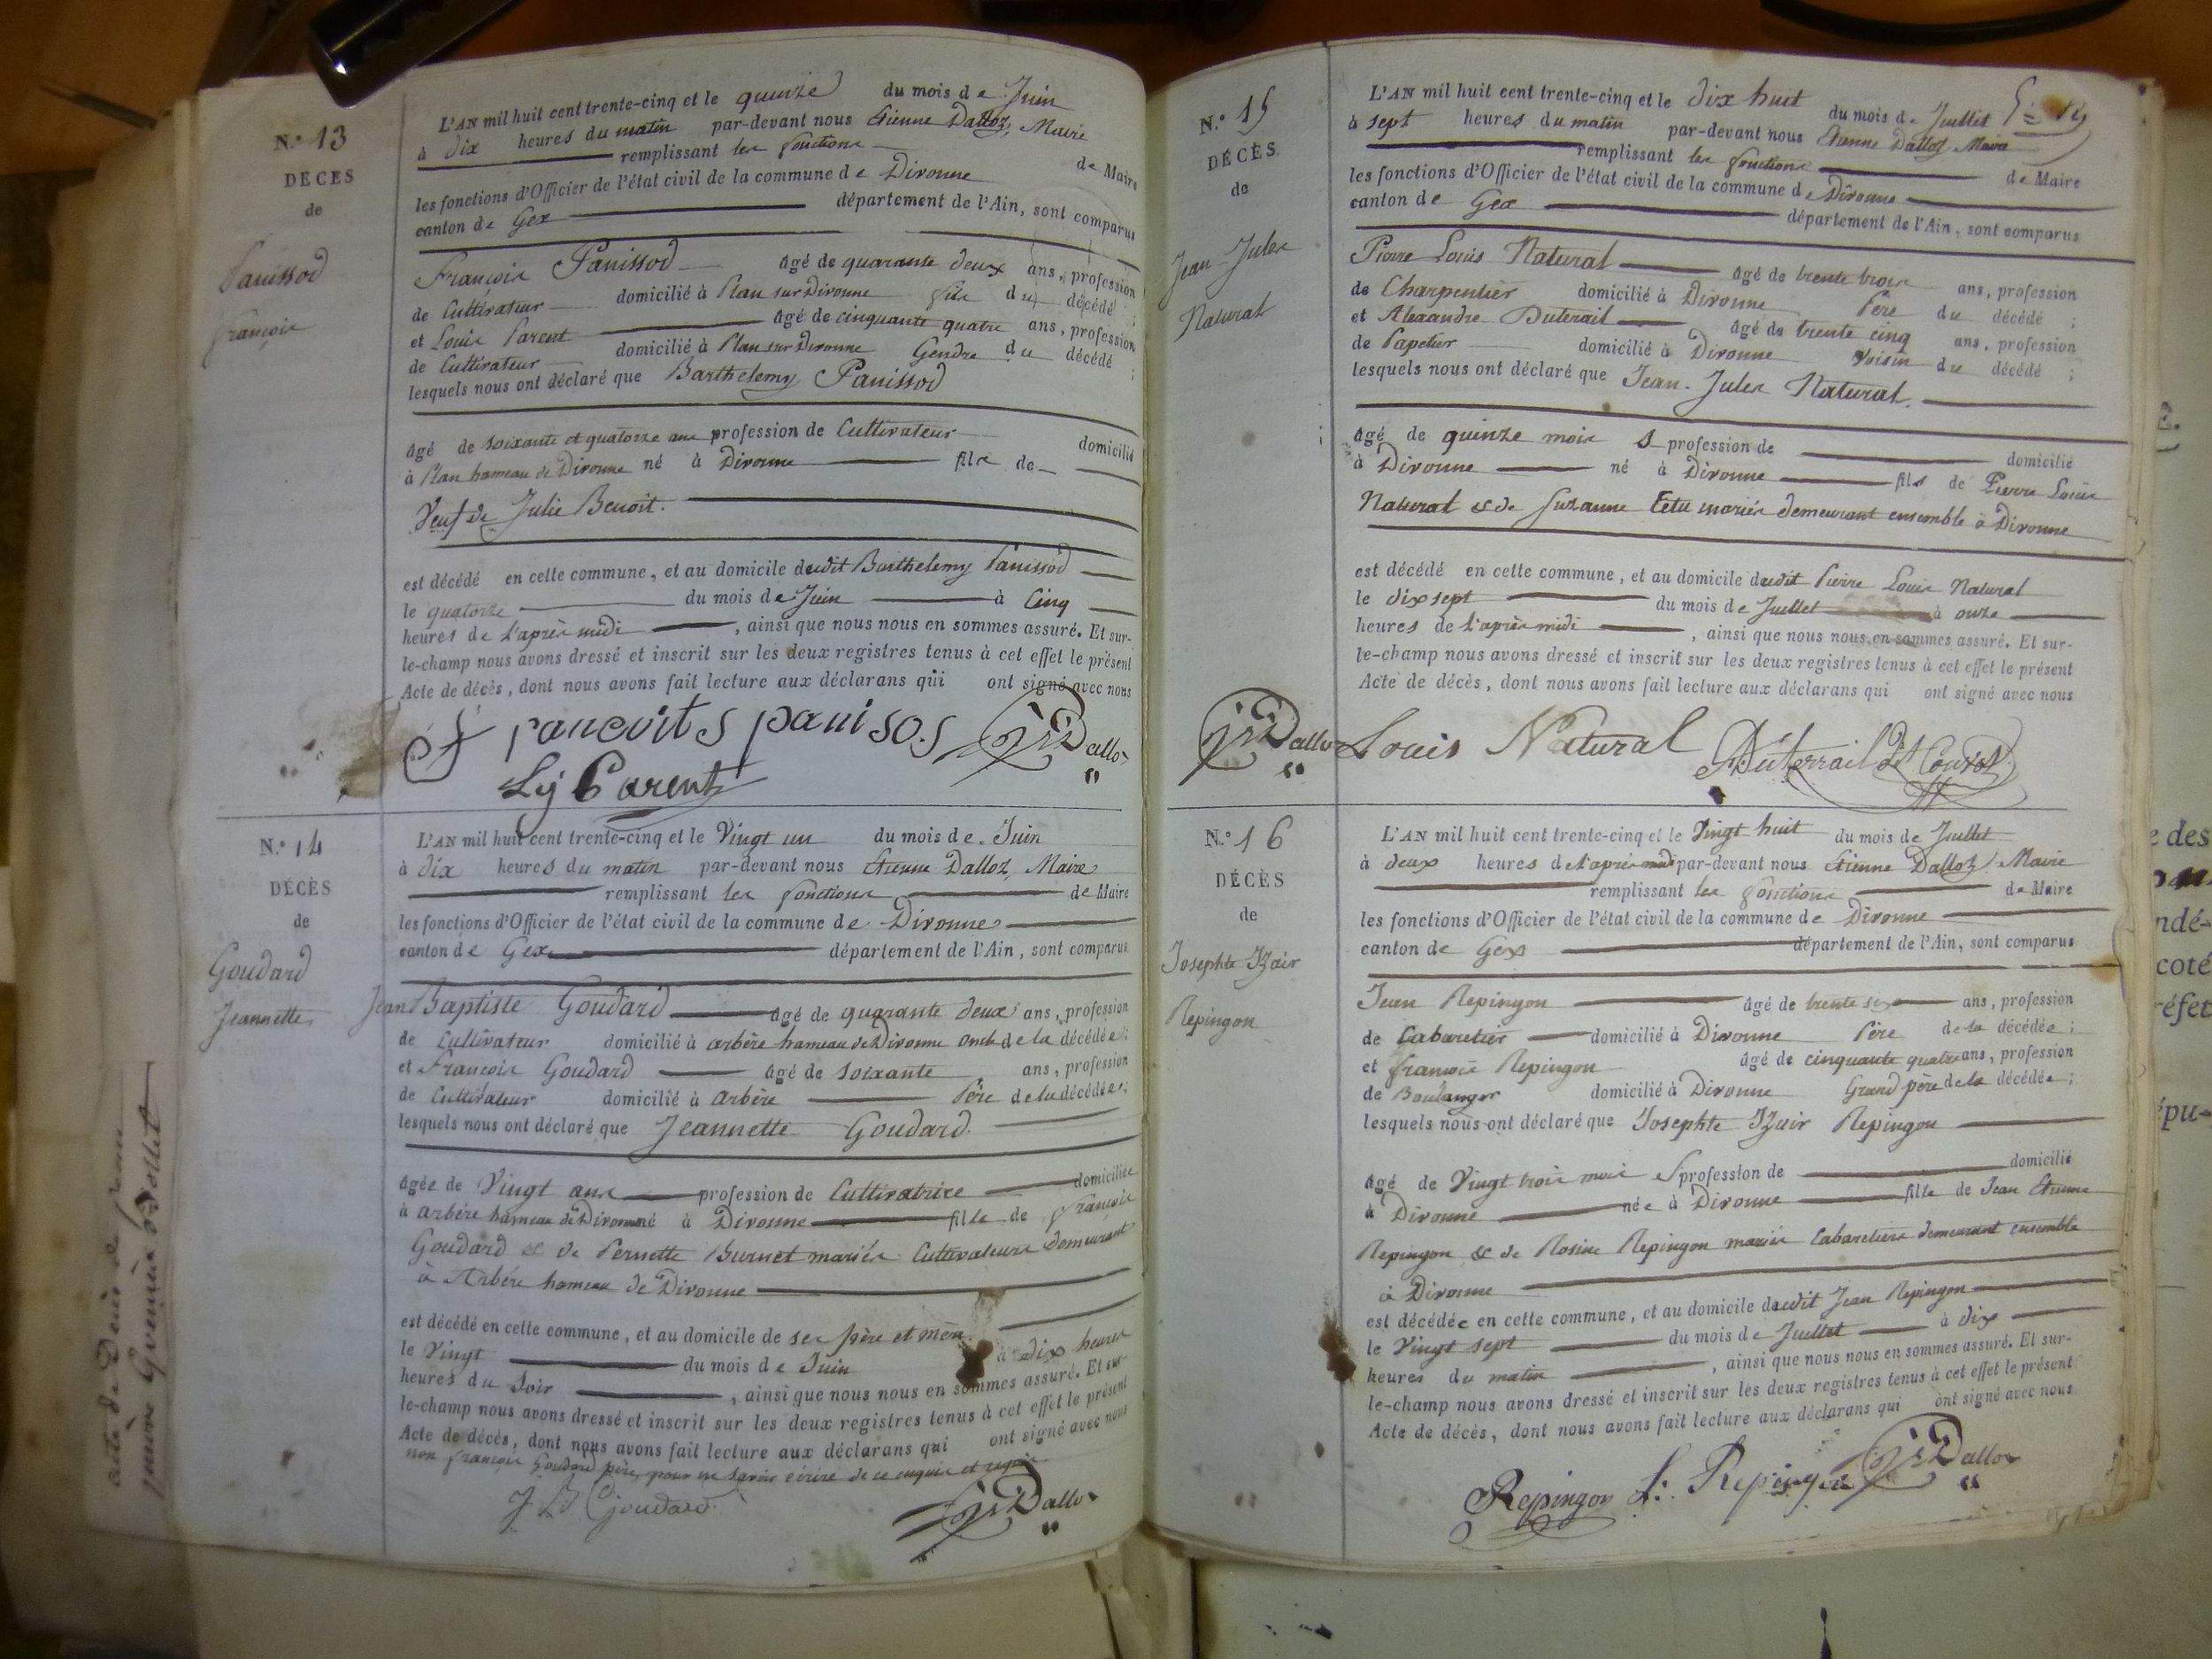 N.° 13
DÉCES
de
Panissod
françois
L'AN mil huit cent trente-cinq et le quinze du mois de Juin
à dix heures du matin par-devant nous Etienne Dalloz, Maire
remplissant les fonctions de Maire
les fonctions d'Officier de l'état civil de la commune de Divonne
canton de Gex département de l'Ain, sont comparus
François Panissod âgé de quarante deux ans, profession
de Cultivateur domicilié à Plan sur Divonne fils du décédé ;
et Louis Parent âgé de cinquante quatre ans, profession
de Cultivateur domicilié à Plan sur Divonne Gendre du décédé ;
lesquels nous ont déclaré que Barthelemy Panissod
âgé de soixante et quatorze ans profession de Cultivateur domicilié
à Plan hameau de Divonne né à Divonne fils de
Veuf de Julie Benoit.
est décédé en cette commune, et au domicile dudit Barthelemy Panissod
le quatorze du mois de Juin à Cinq
heures de l'après midi , ainsi que nous nous en sommes assuré. Et sur-
le-champ nous avons dressé et inscrit sur les deux registres tenus à cet effet le présent
Acte de décès, dont nous avons fait lecture aux déclarans qui ont signé avec nous
francoits panisos Dalloz
Ls Parent
N.° 14
DÉCÈS
de
Goudard
Jeannette
L'AN mil huit cent trente-cinq et le Vingt un du mois de Juin
à dix heures du matin par-devant nous Etienne Dalloz, Maire
remplissant les fonctions de Maire
les fonctions d'Officier de l'état civil de la commune de Divonne
canton de Gex département de l'Ain, sont comparus
Jean Baptiste Goudard âgé de quarante deux ans, profession
de Cultivateur domicilié à arbère hameau de Divonne oncle de la décédée ;
et François Goudard âgé de soixante ans, profession
de Cultivateur domicilié à Arbère Père de la décédée ;
lesquels nous ont déclaré que Jeannette Goudard.
âgée de Vingt ans profession de Cultivatrice domiciliée
à arbère hameau de Divonne né à Divonne fille de François
Goudard & de Pernette Burnet mariés Cultivateurs demeurant
à Arbère hameau de Divonne
est décédé en cette commune, et au domicile de ses père et mère
le Vingt du mois de Juin à dix heures
heures du Soir , ainsi que nous nous en sommes assuré. Et sur-
le-champ nous avons dressé et inscrit sur les deux registres tenus à cet effet le présent
Acte de décès, dont nous avons fait lecture aux déclarans qui ont signé avec nous
non françois Goudard père, pour ne savoir écrire de ce enquis et requis
J B Goudard. Dalloz
acte de Décès de
N.° 15
DÉCÈS
de
Jean-Jules
Natural
L'AN mil huit cent trente-cinq et le dix huit du mois de Juillet
à sept heures du matin par-devant nous Etienne Dalloz Maire
remplissant les fonctions de Maire
les fonctions d'Officier de l'état civil de la commune de Divonne
canton de Gex département de l'Ain, sont comparus
Pierre Louis Natural âgé de trente trois ans, profession
de Charpentier domicilié à Divonne Père du décédé ;
et Alexandre Duterail âgé de trente cinq ans, profession
de Papetier domicilié à Divonne Voisin du décédé ;
lesquels nous ont déclaré que Jean-Jules Natural.
âgé de quinze mois profession de domicilié
à Divonne né à Divonne fils de Pierre Louis
Natural & de Suzanne Tetu mariés demeurant ensemble à Divonne
est décédé en cette commune, et au domicile dudit Pierre Louis Natural
le dix sept du mois de Juillet à onze
heures de l'après midi , ainsi que nous nous en sommes assuré. Et sur-
le-champ nous avons dressé et inscrit sur les deux registres tenus à cet effet le présent
Acte de décès, dont nous avons fait lecture aux déclarans qui ont signé avec nous
Dalloz Louis Natural Duterrail
N.° 16
DÉCÈS
de
Josephte Izair
Repingon
L'AN mil huit cent trente-cinq et le Vingt huit du mois de Juillet
à deux heures de l'après midi par-devant nous Etienne Dalloz Maire
remplissant les fonctions de Maire
les fonctions d'Officier de l'état civil de la commune de Divonne
canton de Gex département de l'Ain, sont comparus
Jean Repingon âgé de trente six ans, profession
de Cabaretier domicilié à Divonne Père de la décédée ;
et françois Repingon âgé de cinquante quatre ans, profession
de Boulanger domicilié à Divonne Grand père de la décédée ;
lesquels nous ont déclaré que Josephte Izair Repingon
âgé de Vingt trois mois profession de domicilié
à Divonne née à Divonne fille de Jean Etienne
Repingon & de Rosine Repingon mariés Cabaretiers demeurant ensemble
à Divonne
est décédée en cette commune, et au domicile dudit Jean Repingon
le Vingt sept du mois de Juillet à dix
heures du matin , ainsi que nous nous en sommes assuré. Et sur-
le-champ nous avons dressé et inscrit sur les deux registres tenus à cet effet le présent
Acte de décès, dont nous avons fait lecture aux déclarans qui ont signé avec nous
Repingon f. Repingon Dalloz
e des
ndé-
coté
réfet
pu-